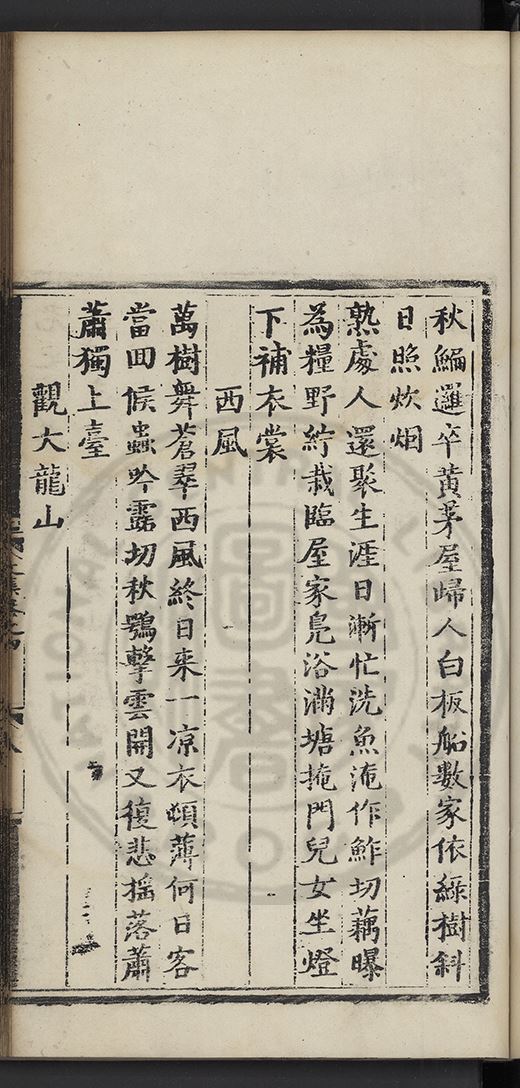 秋鯿邏卒黃茅屋歸人白板船數家依綠樹斜
日照炊烟
熟處人還聚生涯日漸忙洗魚淹作鮓切藕曝
為糧野紵栽臨屋家鳧浴滿塘掩門兒女坐燈
下補衣裳
西風
萬樹舞蒼翠西風終日來一凉衣頓薄何日客
當回候蟲吟露切秋鶚擊雲開又復悲搖落蕭
蕭獨上臺
觀大龍山